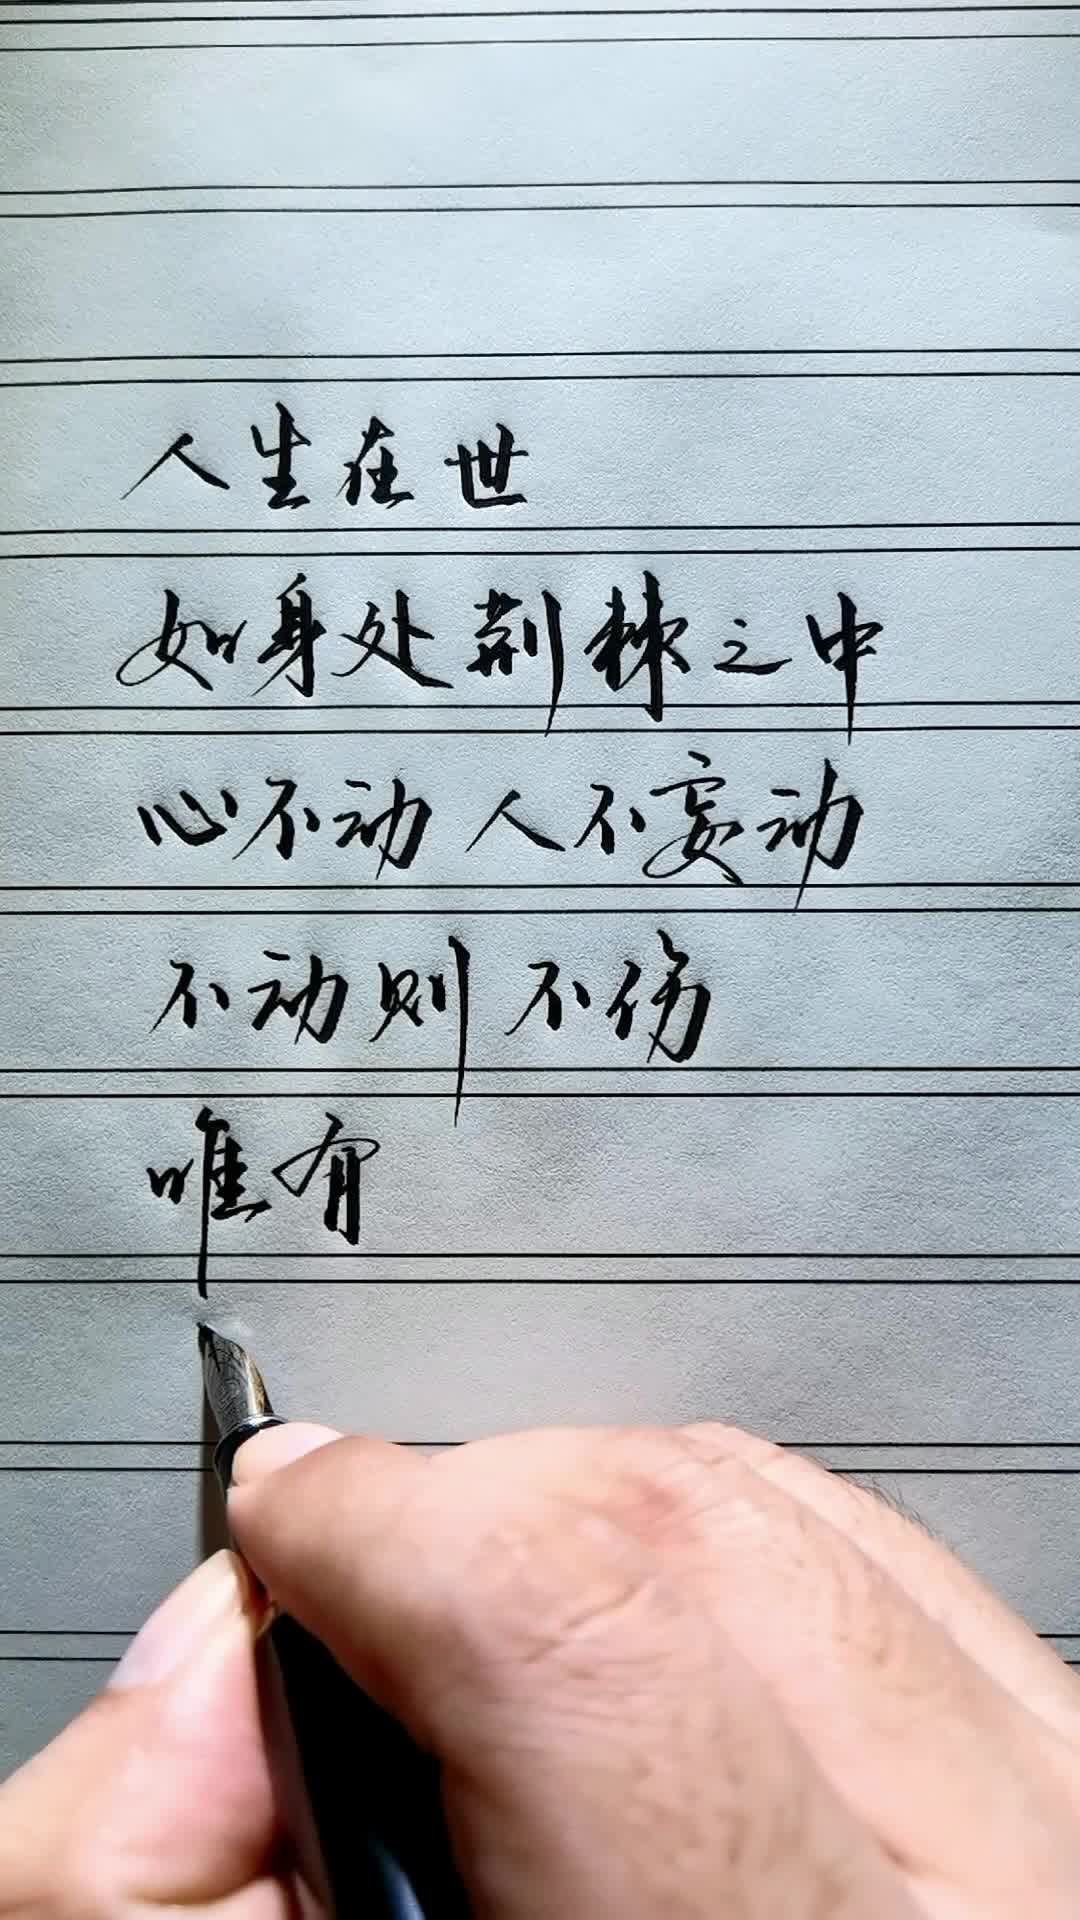 人生在世
如身处荆棘之中
心不动 人不妄动
不动则不伤
唯有